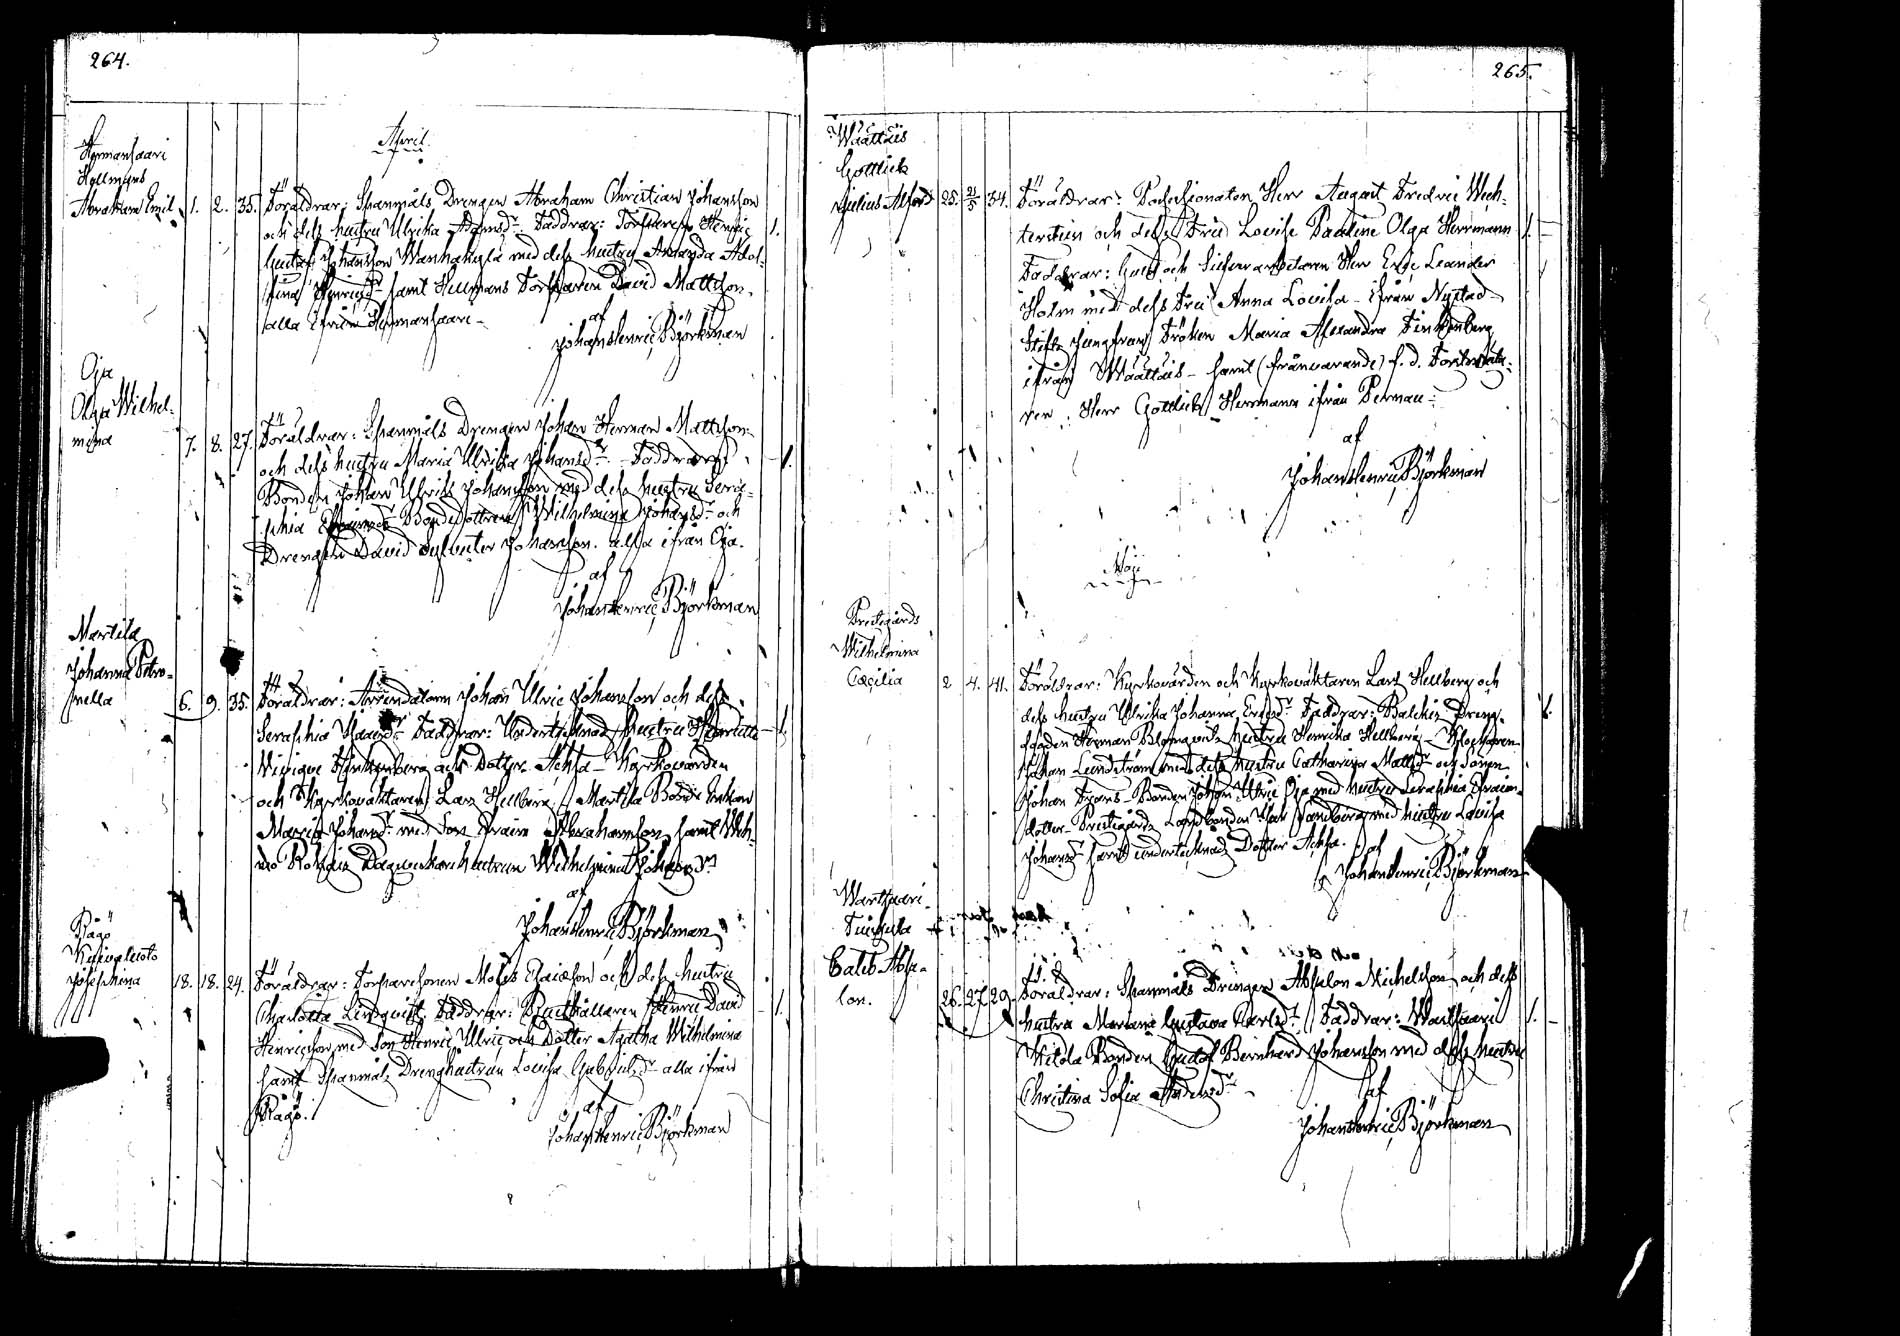 264.
April
Hermansaari
Hellmans
Abraham Emil 1. 2. 35.
Föräldrar: Spanmåls Drengen Abraham Christian Johansson
och dess hustru Ulrika Adamsdr. Faddrar: Torparen Henric
Gustaf Johansson Wanhakylä med dess hustru Amanda Adol-
fina Henricsdr samt Hellmans Torparen David Mattsson. 1.
alla ifrån Hermansaari -
af
Johan Henric Björkman
Oja
Olga Wilhel-
mina 7. 8. 27.
Föräldrar: Spanmåls Drengen Johan Herman Mattsson
och dess hustru Maria Ulrika Johansdr. - Faddrar: 1.
Bonden Johan Ulrik Johansson med dess hustru Sera-
phia Bondedottren Wilhelmina Johansdr och
Drengen David Sylvester Johansson. alla ifrån Oja.
af
Johan Henric Björkman
Martila
Johanna Petro-
nella 6. 9. 35.
Föräldrar: Arrendatorn Johan Ulric Johansson och dess
Seraphia Faddrar: Undertecknad hustru Henriette 1.
Finkenberg och Dotter Achsa - Kyrkovärden
och Kyrkovaktaren Lars Hellberg / Martila Bonde Enkan
Maria Johansdr med Son Efraim Abrahamsson samt Weh-
mo Rohois Dagsverkare hustrun Wilhelmina Johansdr
af
Johan Henric Björkman
Rågö
Koivuluoto
Josephina 18. 18. 24.
Föräldrar: Torparesonen Moses Isaicsson och dess hustru
Charlotta Lindqvist. Faddrar: Brukhållaren Henric David 1.
Henricsson med Son Henric Ulric och Dotter Agatha Wilhelmina
samt Spanmåls Dreng hustrun Lovisa Gabrielsdr alla ifrån
Rågö.
af
Johan Henric Björkman
265.
Wäättäis
Gottlieb
Julius Alfred 25. 21/5 34.
Föräldrar: Possessionaten Herr August Fredric Wech-
terstein och dess Fru Lovise Pauline Olga Herrmann 1.
Faddrar: Guld och Silfverarbetaren Herr Eric Leander
Holm med dess Fru Anna Lovisa - ifrån Nystad
Stifts Jungfrun Fröken Maria Alexandra Finkenberg
ifrån Wäättäis - samt (frånvarande) f.d. Forstmästa-
ren Herr Gottlieb Herrmann ifrån Pernau -
af
Johan Henric Björkman
Maji
Prestgårds
Wilhelmina
Cæcilia 2 4. 41.
Föräldrar: Kyrkovärden och Kyrkovaktaren Lars Hellberg och
dess hustru Ulrika Johanna Ericsdr Faddrar: Balckis Dreng- 1.
Herman Blomqvists hustru Henrika Hellberg - Klockaren
Johan Lundström med dess hustru Catharina Mattsdr och Sonen
Johan Frans - Bonden Johan Ulric Oja med hustru Seraphia Efraims-
dotter - Prestgårds Landbonden Isak Sandberg med hustru Lovisa
Johansdr samt undertecknads Dotter Achsa.
af
Johan Henric Björkman
Wartsaari
Caleb Absa-
lon. 26. 27. 29.
Föräldrar: Spanmåls Drengen Absalon Michelsson och dess
hustru Mariana Gustava Carlsdr / Faddrar: Wartsaari 1.
Bonden Gustaf Bernhard Johansson med dess hustru
Christina Sofia Andersdr -
af
Johan Henric Björkman